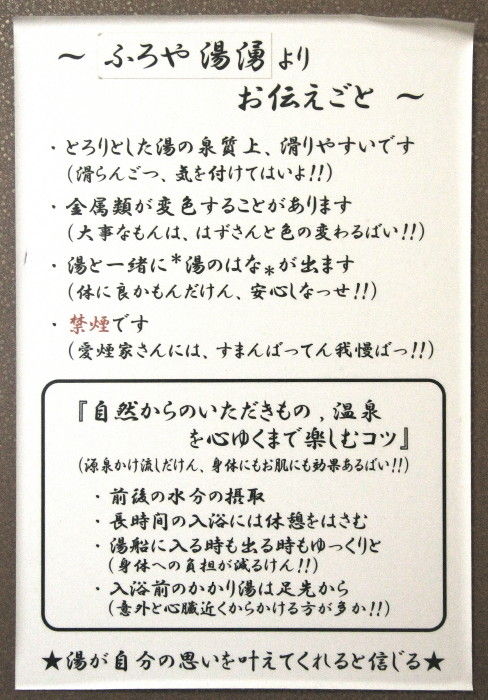 ～ ふろや 湯湧 より
お伝えごと ～
・とろりとした湯の泉質上、滑りやすいです
(滑らんごつ、気を付けてはいよ!!)
・金属類が変色することがあります
(大事なもんは、はずさんと色の変わるばい!!)
・湯と一緒に*湯のはな*が出ます
(体に良かもんだけん、安心しなっせ!!)
・禁煙です
(愛煙家さんには、すまんばってん我慢ばっ!!)
『自然からのいただきもの，温泉
を心ゆくまで楽しむコツ』
(源泉かけ流しだけん、身体にもお肌にも効果あるばい!!)
・前後の水分の摂取
・長時間の入浴には休憩をはさむ
・湯船に入る時も出る時もゆっくりと
(身体への負担が減るけん!!)
・入浴前のかかり湯は足先から
(意外と心臓近くからかける方が多か!!)
★湯が自分の思いを叶えてくれると信じる★